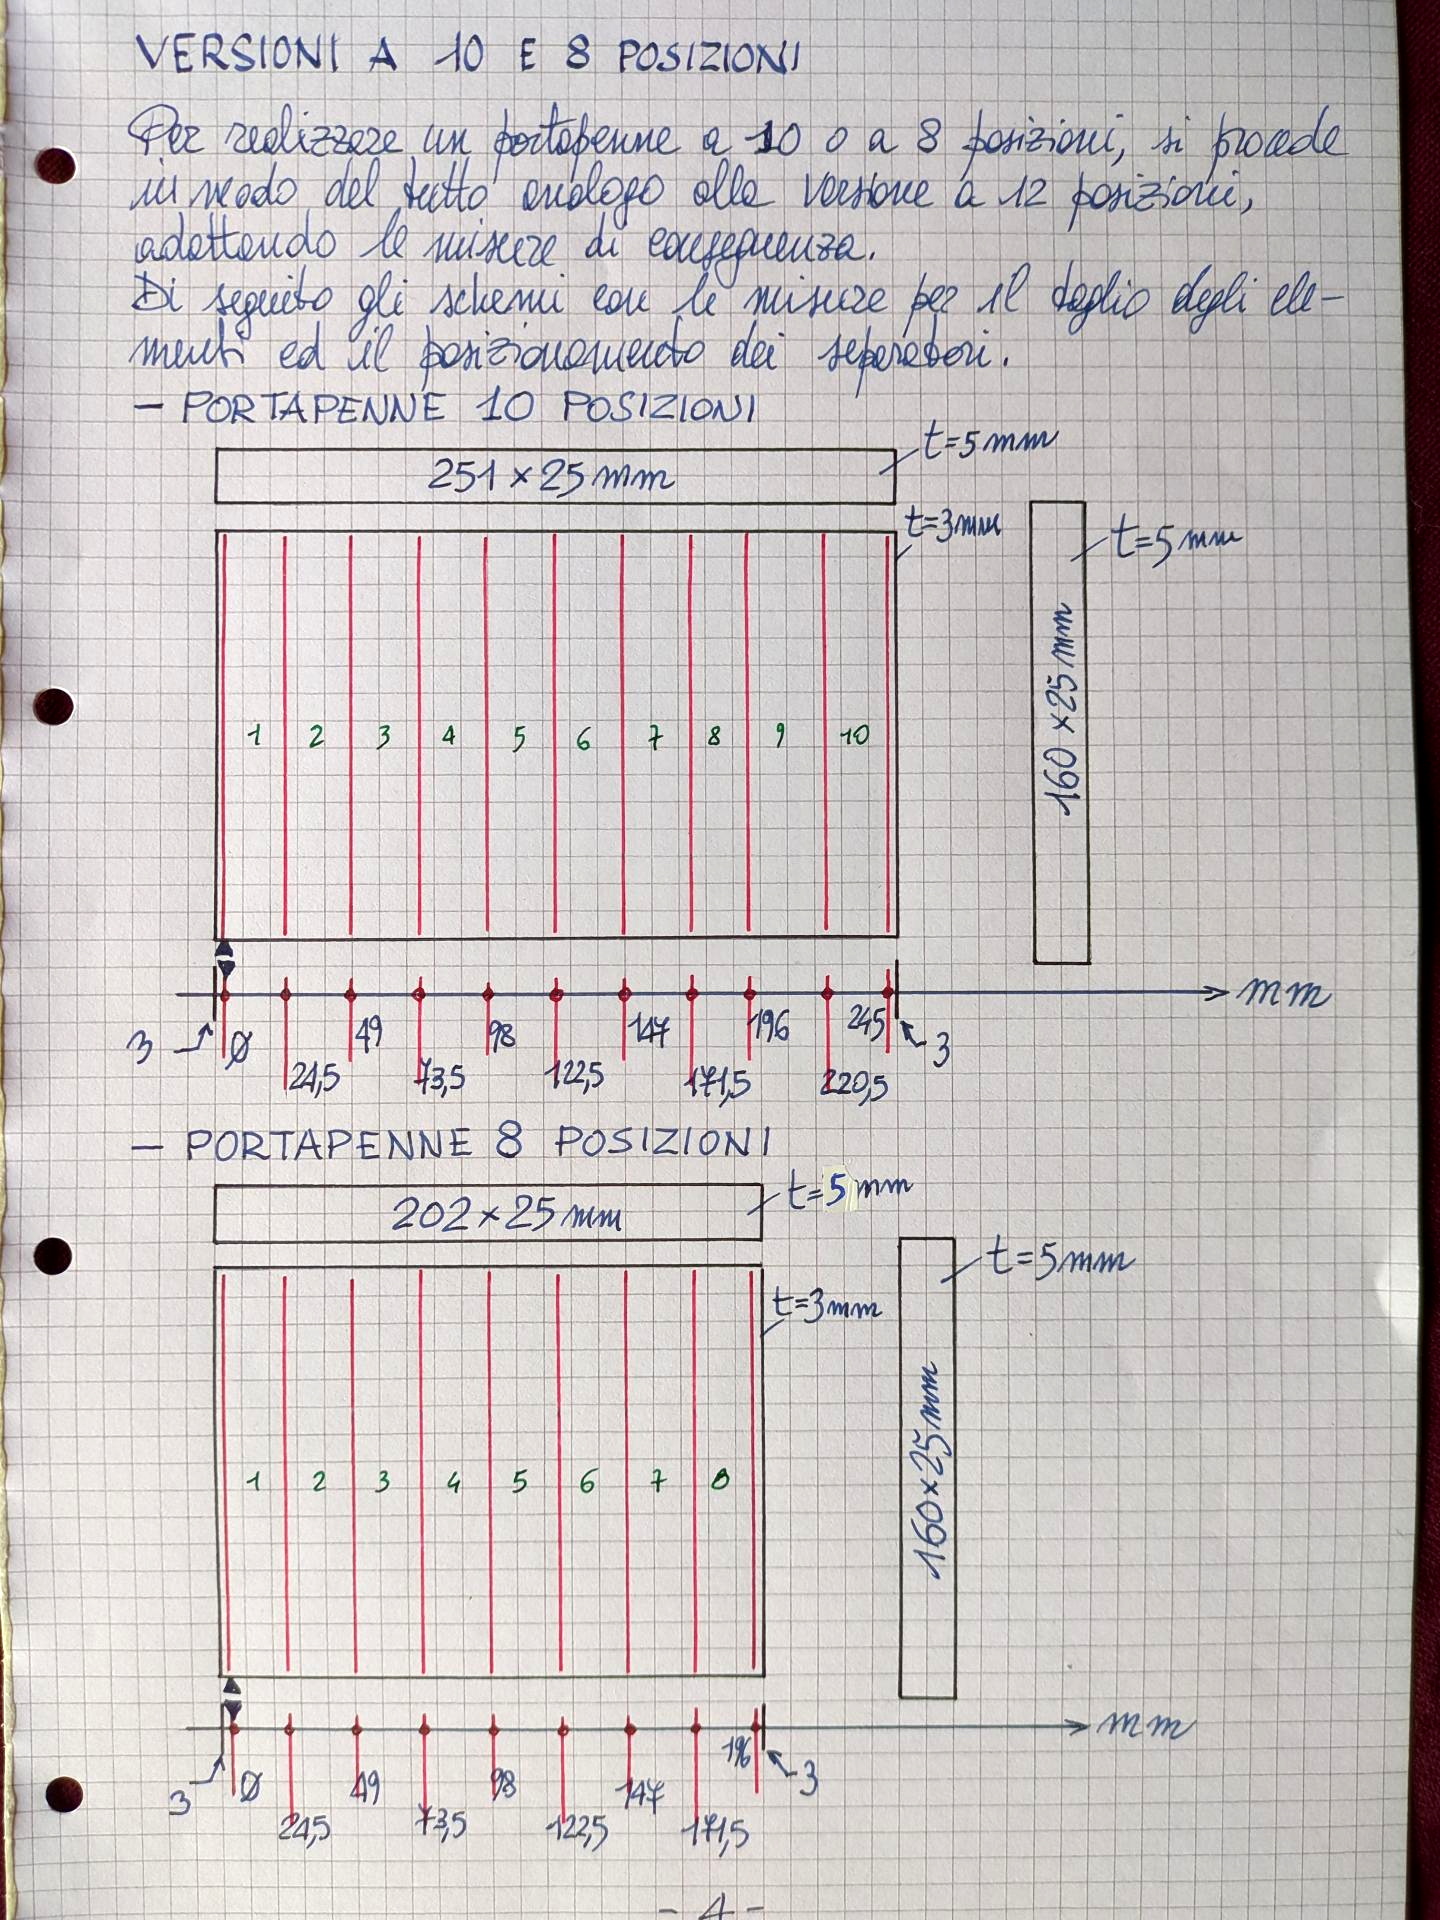 VERSIONI A 10 E 8 POSIZIONI
Per realizzare un portapenne a 10 o a 8 posizioni, si procede
in modo del tutto analogo alla versione a 12 posizioni,
adattando le misure di conseguenza.
Di seguito gli schemi con le misure per il taglio degli ele-
menti ed il posizionamento dei separatori.
- PORTAPENNE 10 POSIZIONI
t=5mm
251×25mm
t=3mm
t=5mm
160×25mm
1 2 3 4 5 6 7 8 9 10
mm
3 Ø 49 98 147 196 245 3
24,5 73,5 122,5 171,5 220,5
- PORTAPENNE 8 POSIZIONI
t=5mm
202×25mm
t=5mm
t=3mm
160×25mm
1 2 3 4 5 6 7 8
mm
3 Ø 49 98 147 196 3
24,5 73,5 122,5 171,5
- 4 -